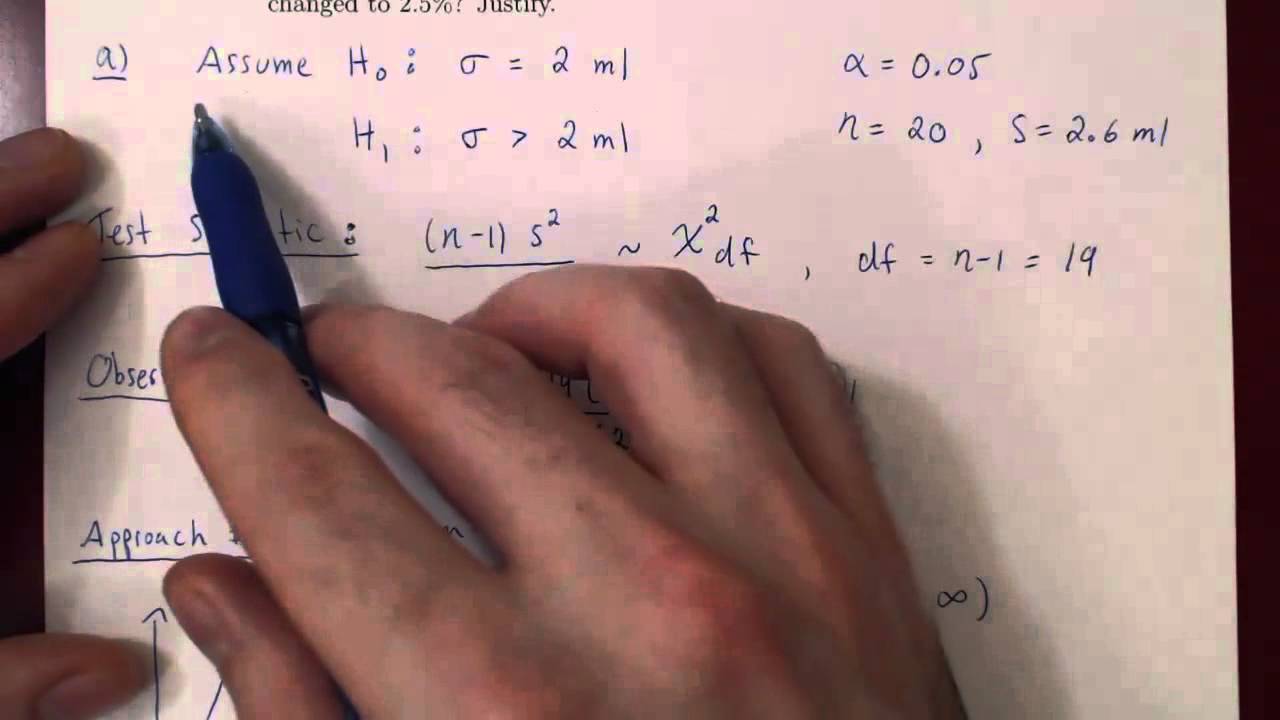 changed to 2.5%? Justify.
a) Assume H₀ : σ = 2 ml α = 0.05
H₁ : σ > 2 ml n = 20 , s = 2.6 ml
Test (n-1) s² ~ χ²df , df = n-1 = 19
Approach
∞)